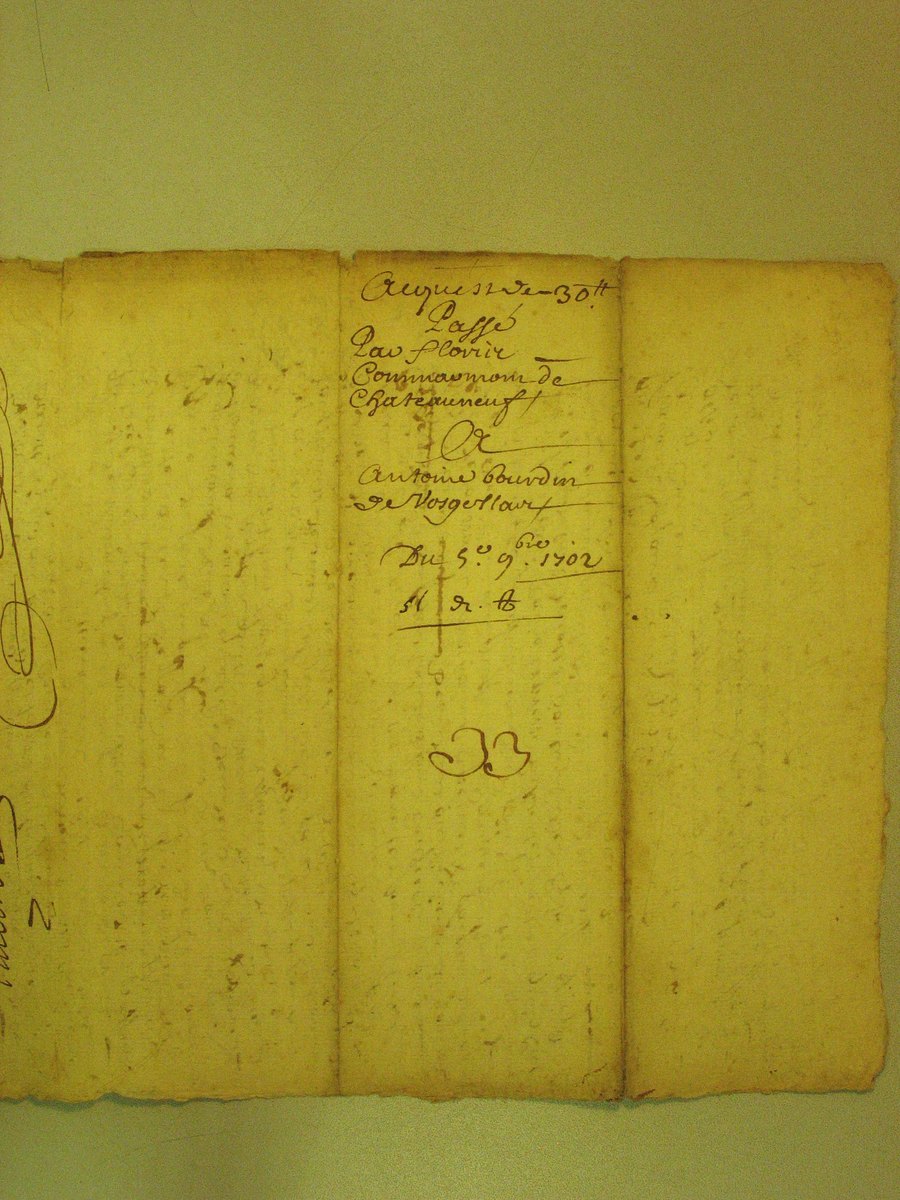 Acquest de 30 tt
Passé
Par florir
Commarmom de
Chateauneuf
A
Antoine bourdin
de Vosgellar
Du 5.e 9.bre 1702
51 d. tt
33
2